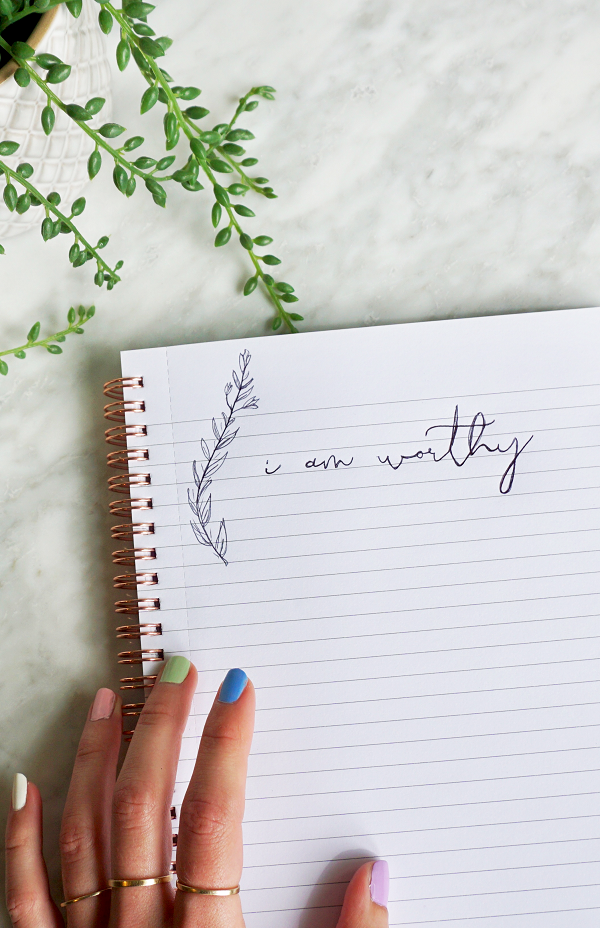 i am worthy